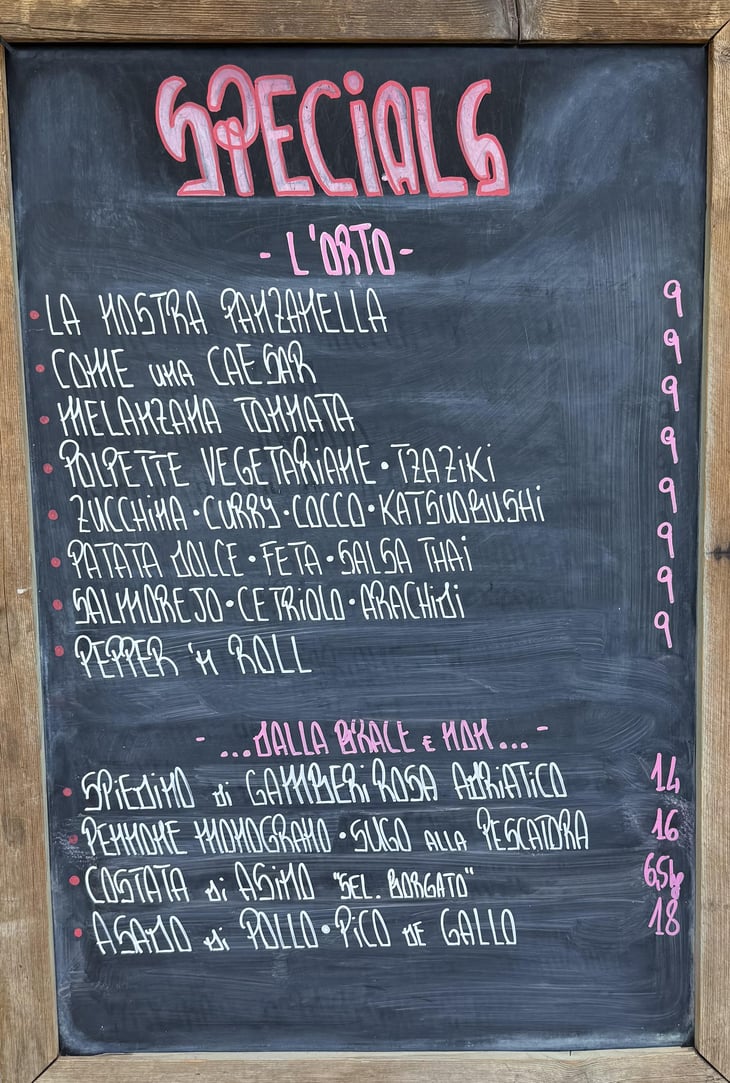 SPECIALS
- L'ORTO -
• LA NOSTRA PANZANELLA 9
• COME UNA CAESAR 9
• MELANZANA TONNATA 9
• POLPETTE VEGETARIANE • TZAZIKI 9
• ZUCCHINA • CURRY • COCCO • KATSUOBUSHI 9
• PATATA DOLCE • FETA • SALSA THAI 9
• SALMOREJO • CETRIOLO • ARACHIDI 9
• PEPPER 'N ROLL 9
- ...DALLA BRACE E NON... -
• SPIEDINO di GAMBERI ROSA ADRIATICO 14
• PENNONE MONOGRANO • SUGO ALLA PESCATORA 16
• COSTATA di ASINO "SEL. BORGATO" 6,5hg
• ASADO di POLLO • PICO DE GALLO 18